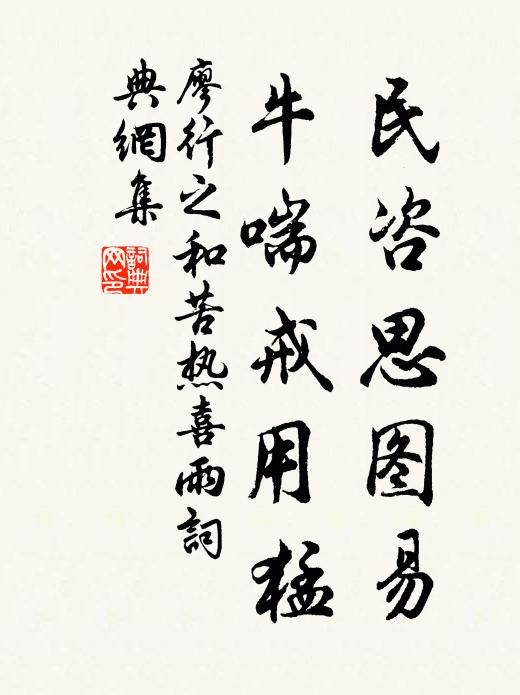 民咨思图易
牛喘戒用猛
廖行之和苦热喜雨詞
典網集
詞典
网印